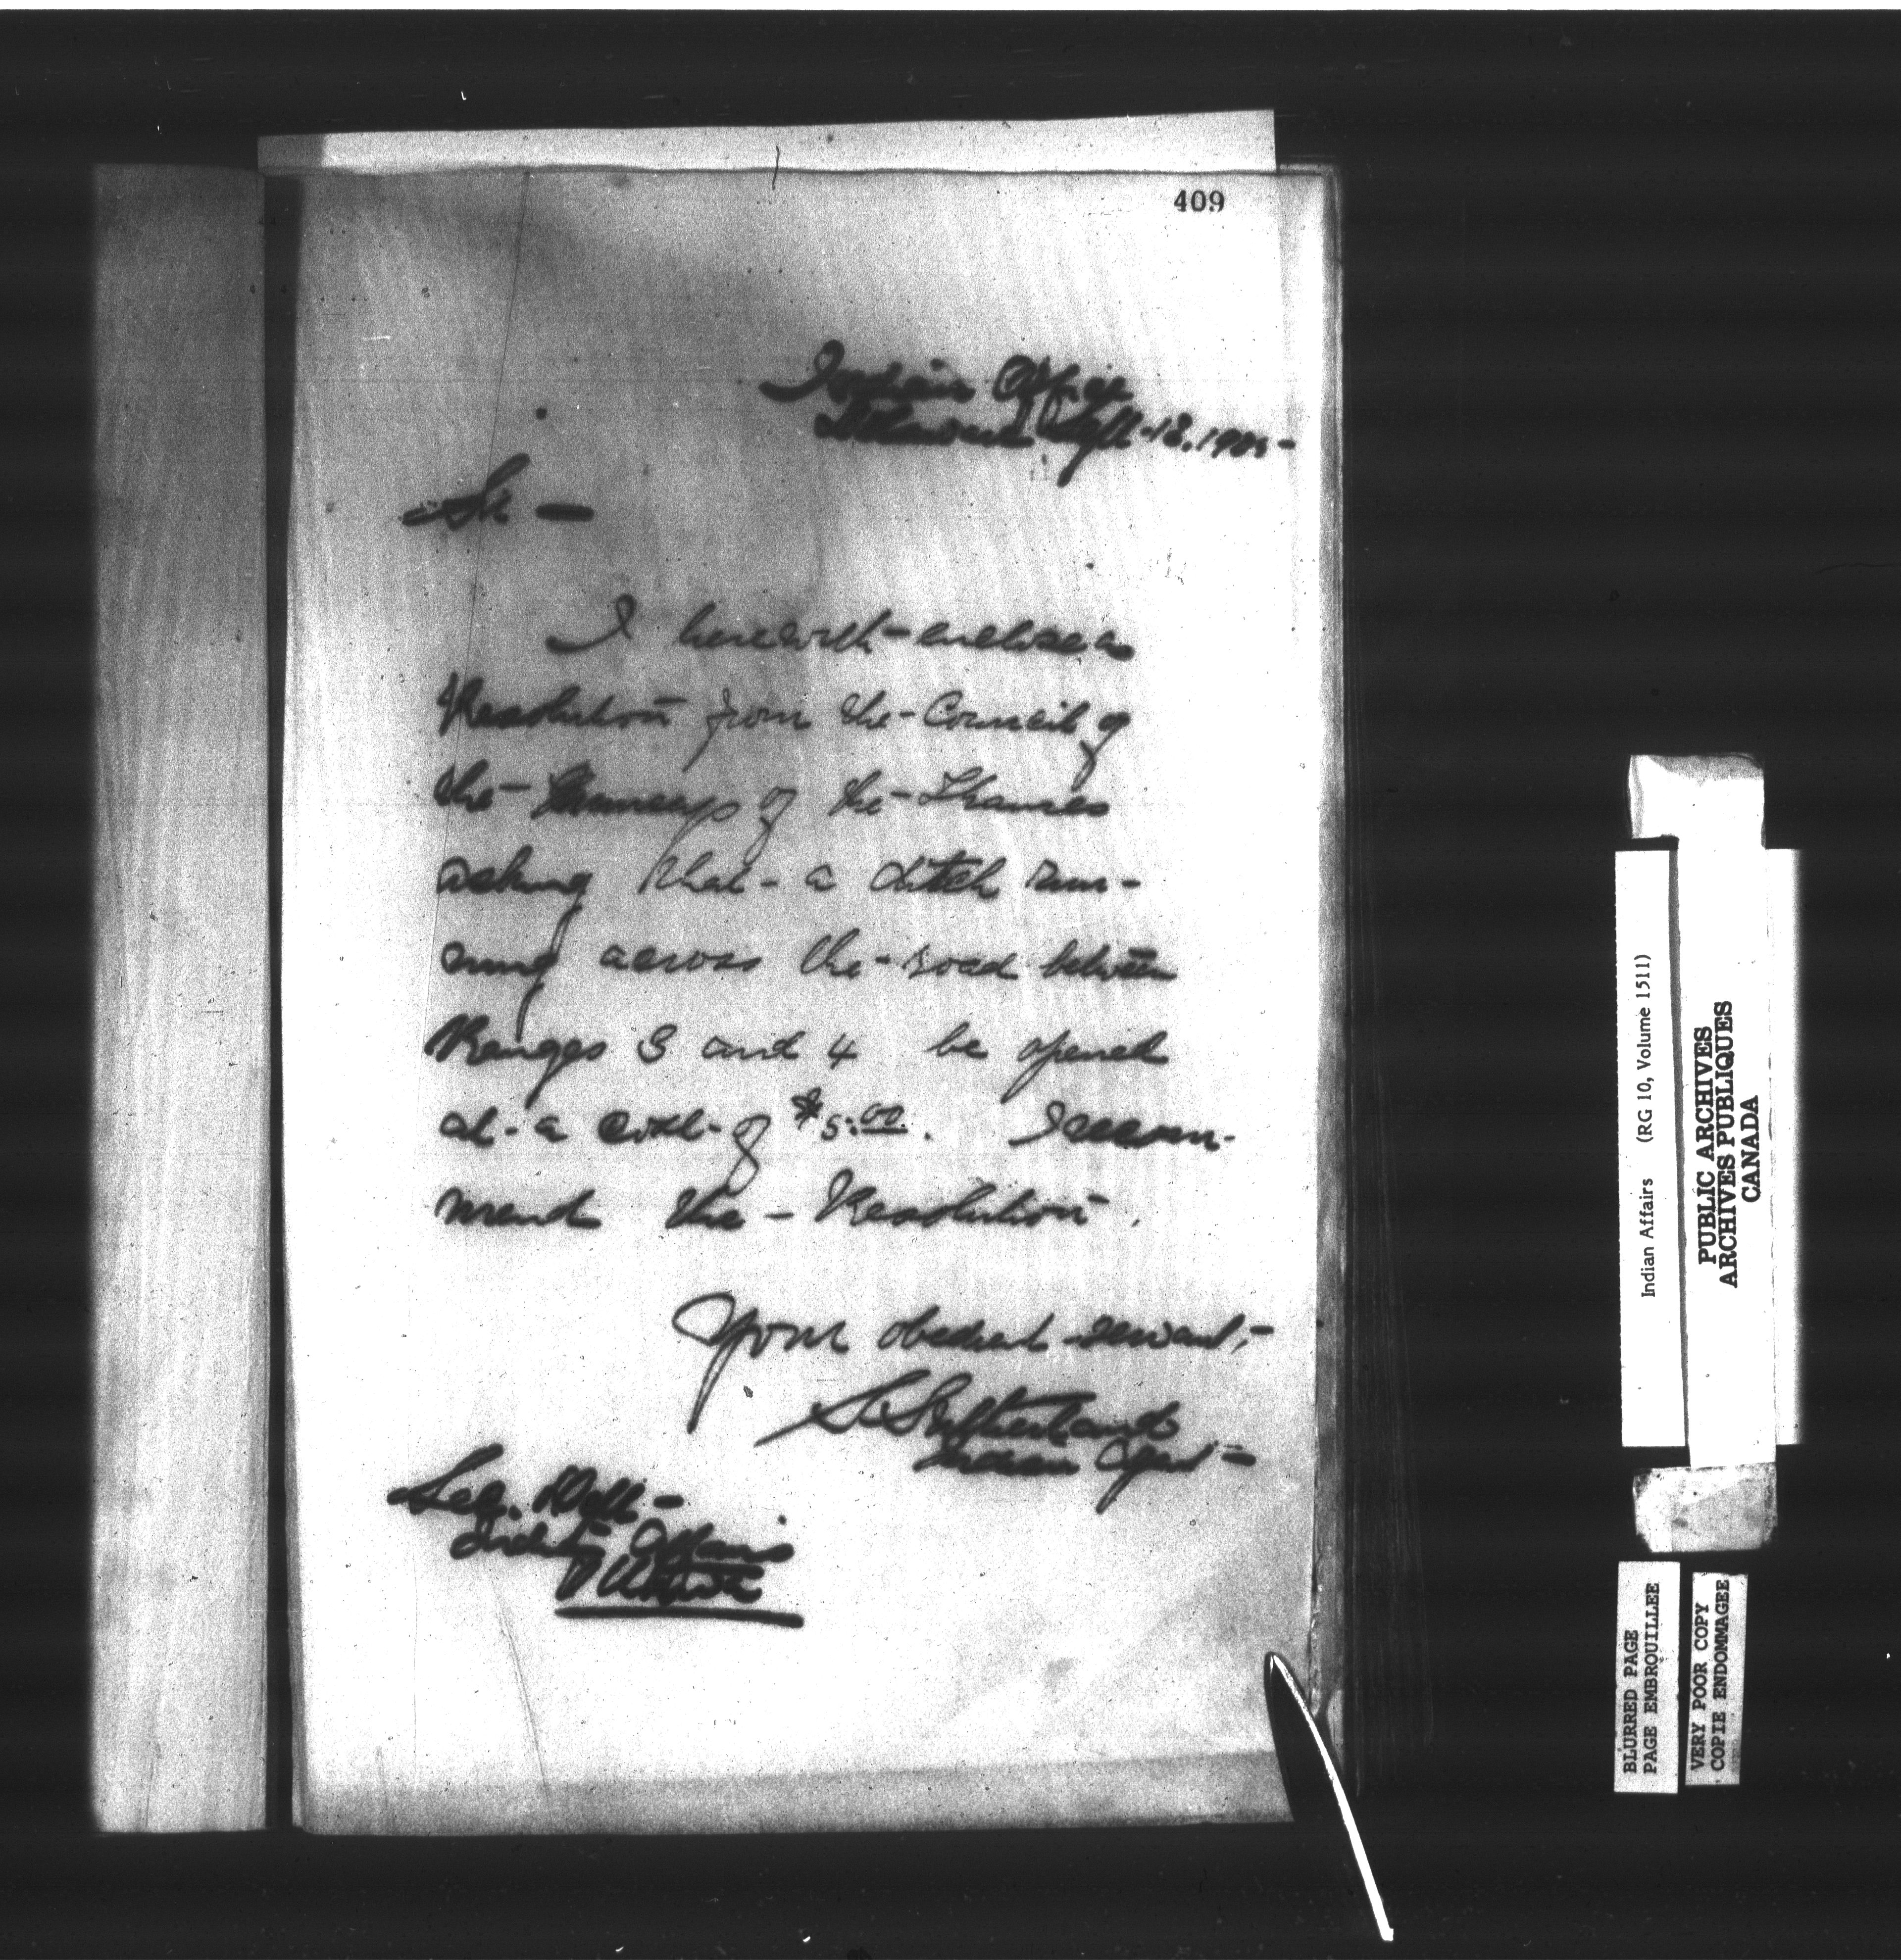 409
Indian Office
Delaware Sept-18.1905-
Sir —
I herewith enclose a
Resolution from the Council of
the Munceys of the Thames
asking that a ditch run-
ning across the road between
Ranges 3 and 4 be opened
at a cost of $5.00. I recom-
mend the Resolution.
Your obedient servant,
S Sutherland
Indian Agent
Sec. Dept
Indian Affairs
Ottawa
Indian Affairs (RG 10, Volume 1511)
PUBLIC ARCHIVES
ARCHIVES PUBLIQUES
CANADA
BLURRED PAGE
PAGE EMBROUILLEE
VERY POOR COPY
COPIE ENDOMMAGEE